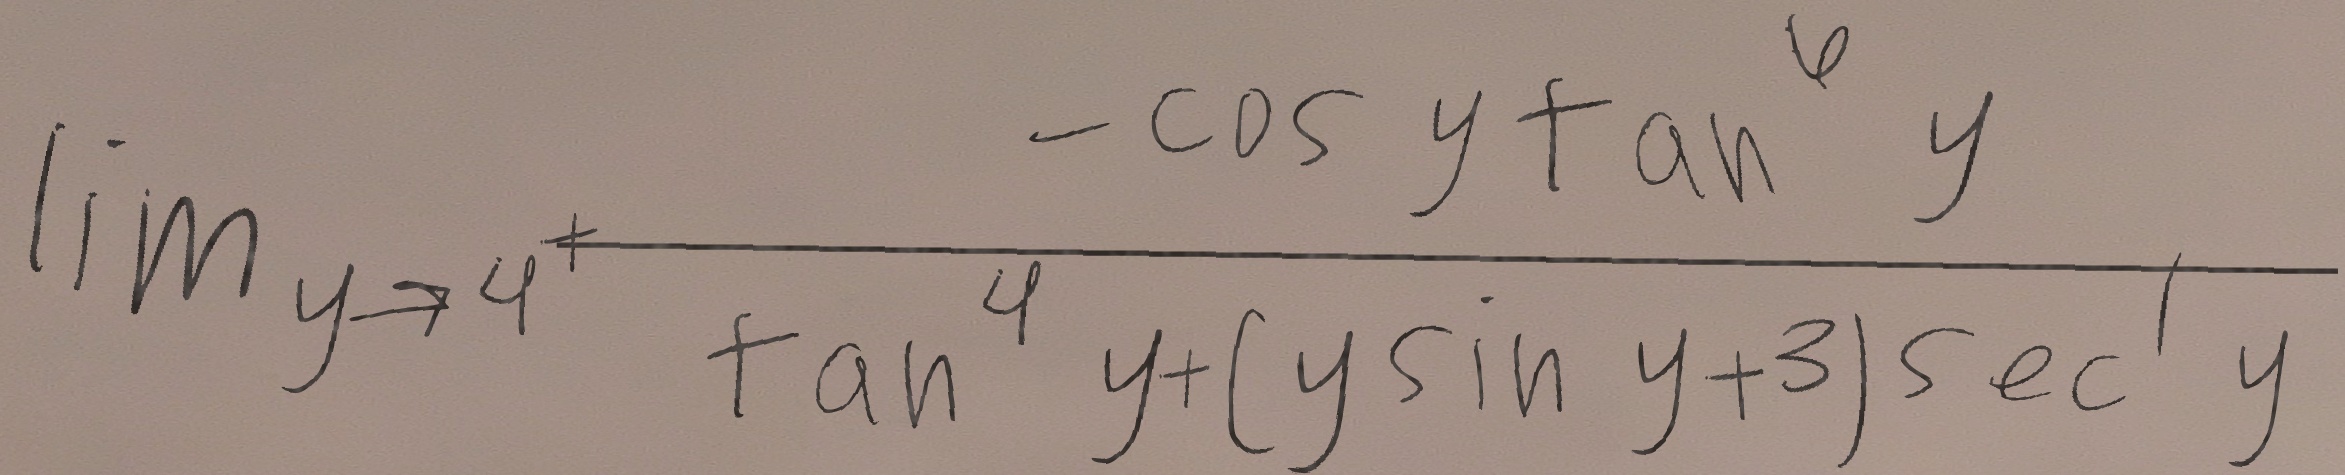 \lim_{y \to 4^+} \frac{-\cos y \tan^6 y}{\tan^4 y + (y \sin y + 3) \sec^1 y}